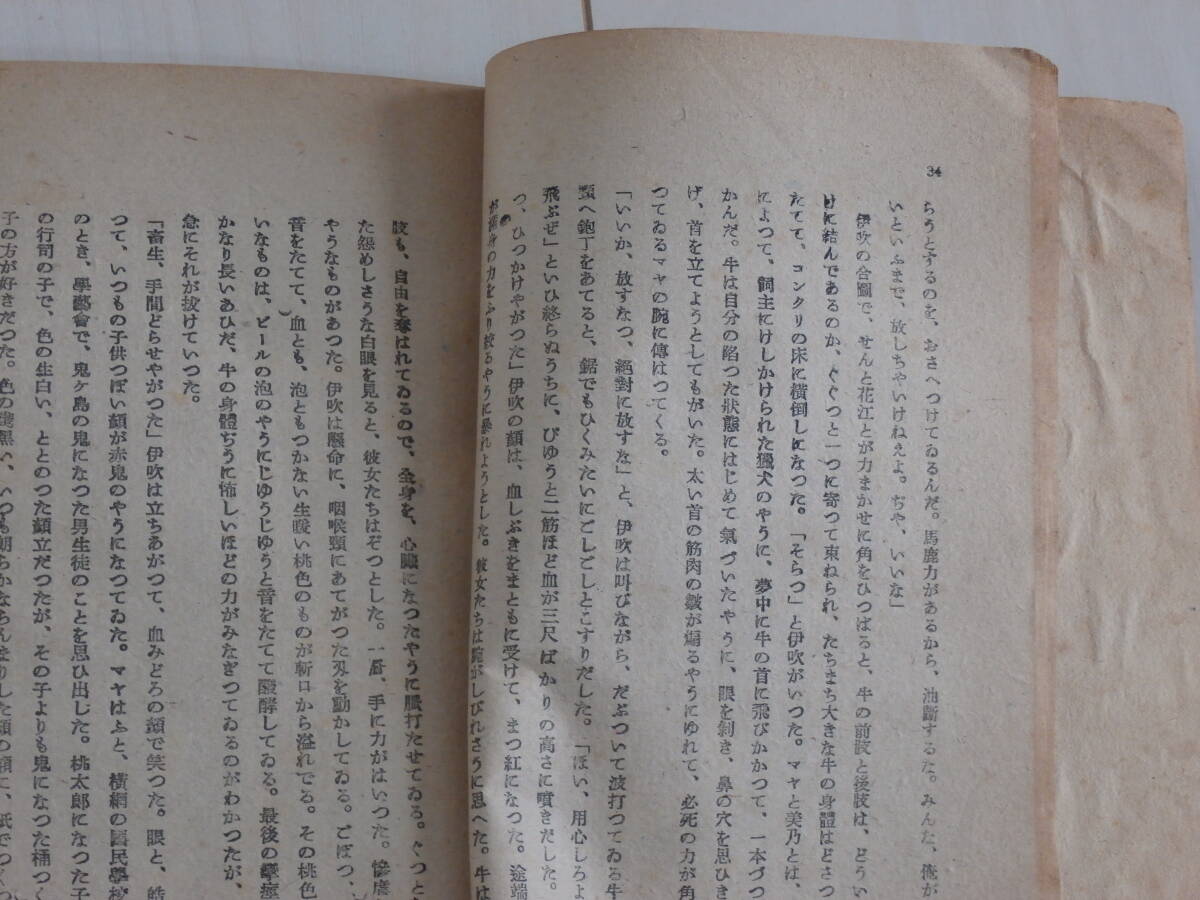 34
ちうとするのを、おさへつけてゐるんだ。馬鹿力があるから、油斷するな。みんな、俺が
いといふまで、放しちやいけねえよ。ぢや、いいな」
伊吹の合圖で、せんと花江とが力まかせに角をひつぱると、牛の前肢と後肢は、どうい
けに結んであるのか、ぐぐつと一つに寄つて束ねられ、たちまち大きな牛の身體はどさつ
たてて、コンクリの床に橫倒しになつた。「そらつ」と伊吹がいつた。マヤと美乃とは、
によつて、飼主にけしかけられた獵犬のやうに、夢中に牛の首に飛びかかつて、一本づつ
かんだ。牛は自分の陷つた狀態にはじめて氣づいたやうに、眼を剝き、鼻の穴を思ひき
げ、首を立てようとしてもがいた。太い首の筋肉の皺が煽るやうにゆれて、必死の力が角
つてゐるマヤの腕に傳はつてくる。
「いいか、放すなつ、絕對に放すな」と、伊吹は叫びながら、だぶついて波打つてゐる牛
頸へ鉋丁をあてると、鋸でもひくみたいにごしごしとこすりだした。「ほい、用心しろよ
飛ぶぜ」といひ終らぬうちに、ぴゆうと二筋ほど血が三尺ばかりの高さに噴きだした。
つ、ひつかけやがつた」伊吹の顏は、血しぶきをまともに受けて、まつ紅になつた。途端
身の力をふり絞るやうに暴れようとした。彼女たちは腕がしびれさうに思へた。牛は
肢も、自由を奪はれてゐるので、全身を、心臟になつたやうに脈打たせてゐる。ぐつと
た怨めしさうな白眼を見ると、彼女たちはぞつとした。一層、手に力がはいつた。慘虐
やうなものがあつた。伊吹は懸命に、咽喉頸にあてがつた刄を動かしてゐる。ごぼつ、
音をたてて、血とも、泡ともつかない生暖い桃色のものが斬口から溢れでる。その桃色
いなものは、ビールの泡のやうにじゆうじゆうと音をたてて醱酵してゐる。最後の攣痙
かなり長いあひだ、牛の身體ぢうに怖しいほどの力がみなぎつてゐるのがわかつたが、
急にそれが拔けていつた。
「畜生、手間どらせやがつた」伊吹は立ちあがつて、血みどろの顏で笑つた。眼と、皓
つて、いつもの子供つぽい顏が赤鬼のやうになつてゐた。マヤはふと、橫網の國民學校
のとき、學藝會で、鬼ヶ島の鬼になつた男生徒のことを思ひ出した。桃太郎になつた子
の行司の子で、色の生白い、ととのつた顏立だつたが、その子よりも鬼になつた桶つく
子の方が好きだつた。色の淺黑い、いつも朗らかなちんまりした顏の額に、紙でつくつ